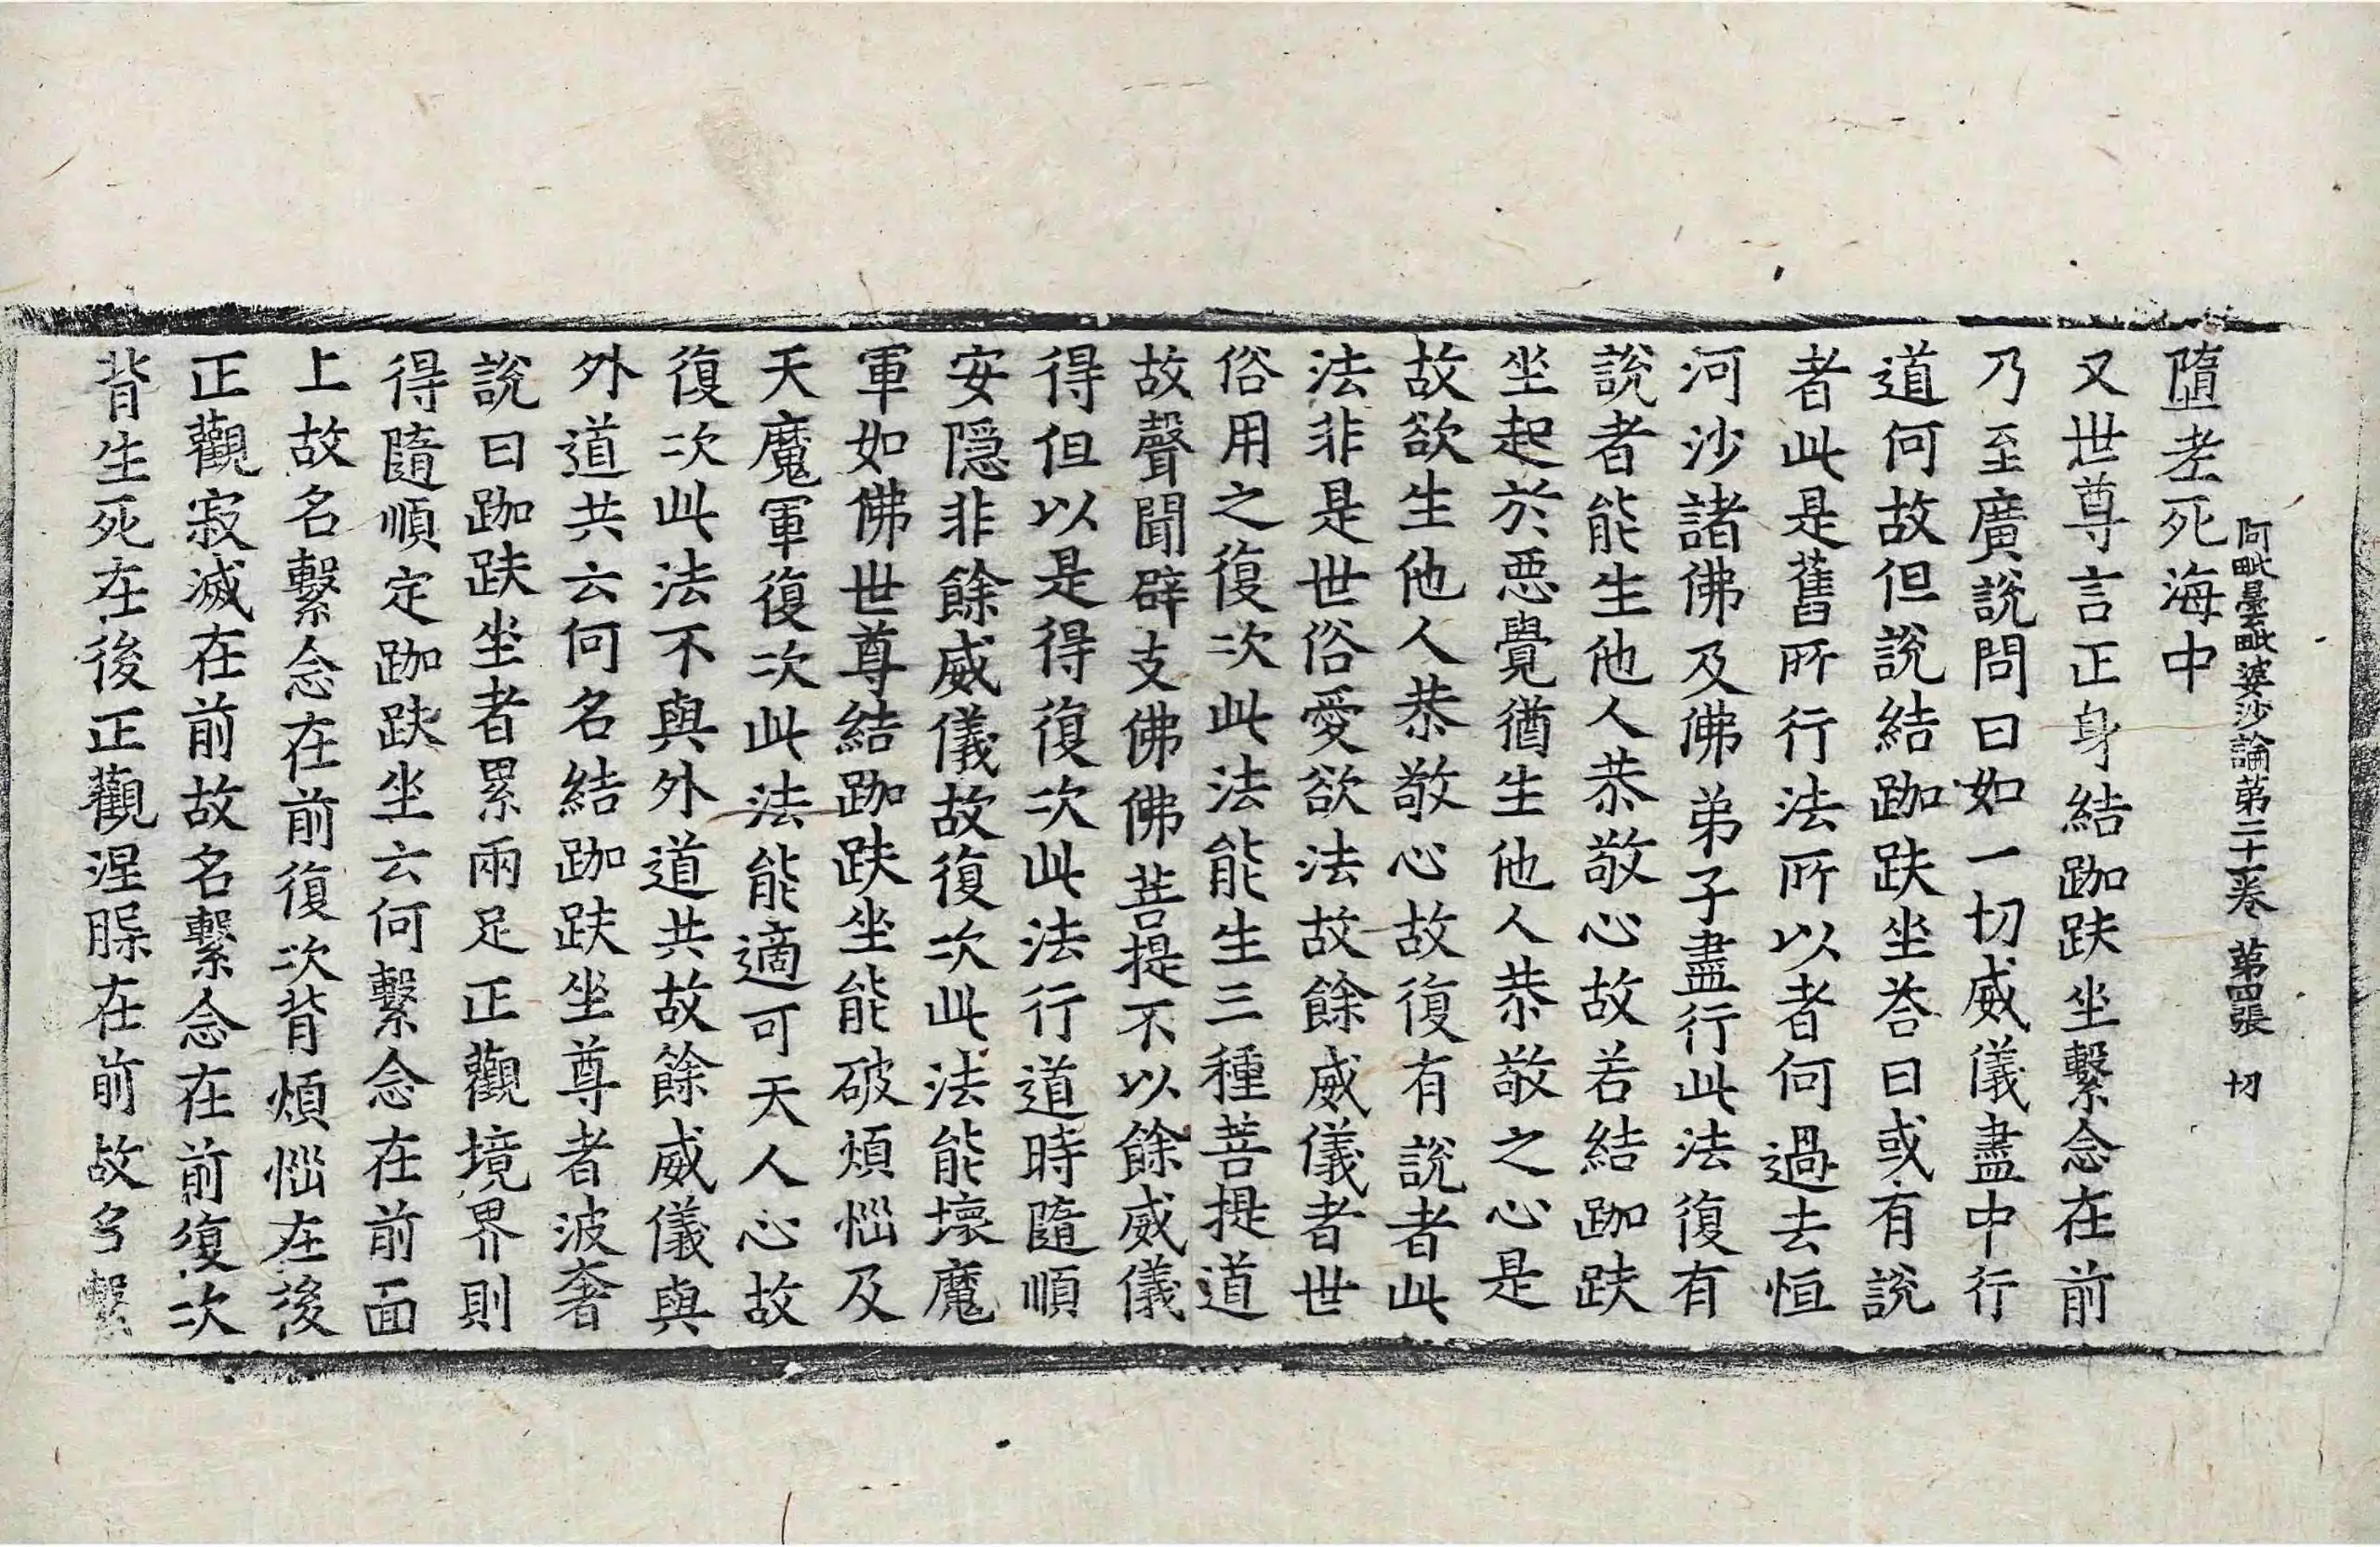 阿毗曇毗婆沙論第二十一卷 第四張 切
墮老死海中
又世尊言正身結跏趺坐繫念在前
乃至廣說問曰如一切威儀盡中行
道何故但說結跏趺坐荅曰或有說
者此是舊所行法所以者何過去恒
河沙諸佛及佛弟子盡行此法復有
說者能生他人恭敬心故若結跏趺
坐起於惡覺猶生他人恭敬之心是
故欲生他人恭敬心故復有說者此
法非是世俗愛欲法故餘威儀者世
俗用之復次此法能生三種菩提道
故聲聞辟支佛佛菩提不以餘威儀
得但以是得復次此法行道時隨順
安隱非餘威儀故復次此法能壞魔
軍如佛世尊結跏趺坐能破煩惱及
天魔軍復次此法能適可天人心故
復次此法不與外道共故餘威儀與
外道共云何名結跏趺坐尊者波奢
說曰跏趺坐者累兩足正觀境界則
得隨順定跏趺坐云何繫念在前面
上故名繫念在前復次背煩惱在後
正觀寂滅在前故名繫念在前復次
背生死在後正觀涅槃在前故名繫